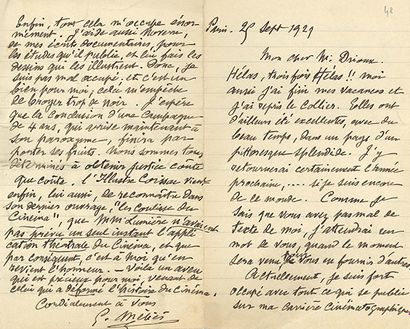 Paris. 25 Sept 1929
Mon cher Mr. Drioux.
Hélas, trois fois Hélas!! moi
aussi j'ai fini mes vacances et
j'ai repris le collier. Elles ont
d'ailleurs été excellentes, avec du
beau temps, dans un pays d'un
pittoresque splendide. J'y
retournerai certainement l'année
prochaine, .... si je suis encore
de ce monde. Comme je
sais que vous avez pas mal de
texte de moi, j'attendrai un
mot de vous, quand le moment
sera venu de vous en fournir d'autres.
Actuellement, je suis fort
occupé avec tout ce qui se publie
sur ma carrière Cinématographique
Enfin, tout cela m'occupe énor
mément. J'aide aussi Noverre,
de mes écrits documentaires, pour
les études qu'il publie, et lui fais les
dessins qui les illustrent. Donc, je
suis pas mal occupé, et c'est un
bien pour moi, cela m'empêche
de broyer trop de noir. J'espère
que la conclusion d'une campagne
de 4 ans, qui arrive maintenant à
son paroxysme, finira par
porter ses fruits. Nous sommes tous
déterminés à obtenir justice coûte
que coûte. L'illustre Coissac vient
enfin, lui aussi, de reconnaître dans
son dernier ouvrage, "les Coulisses du
Cinéma", que Mr Lumière n'avait
pas prévu un seul instant l'appli
cation théâtrale du Cinéma, et que
par conséquent, c'est à moi qu'en
revient l'honneur. Voilà un aveu
qui est précieux pour moi, venant de
celui qui a déformé l'histoire du Cinéma.
Cordialement à vous
G. Méliès